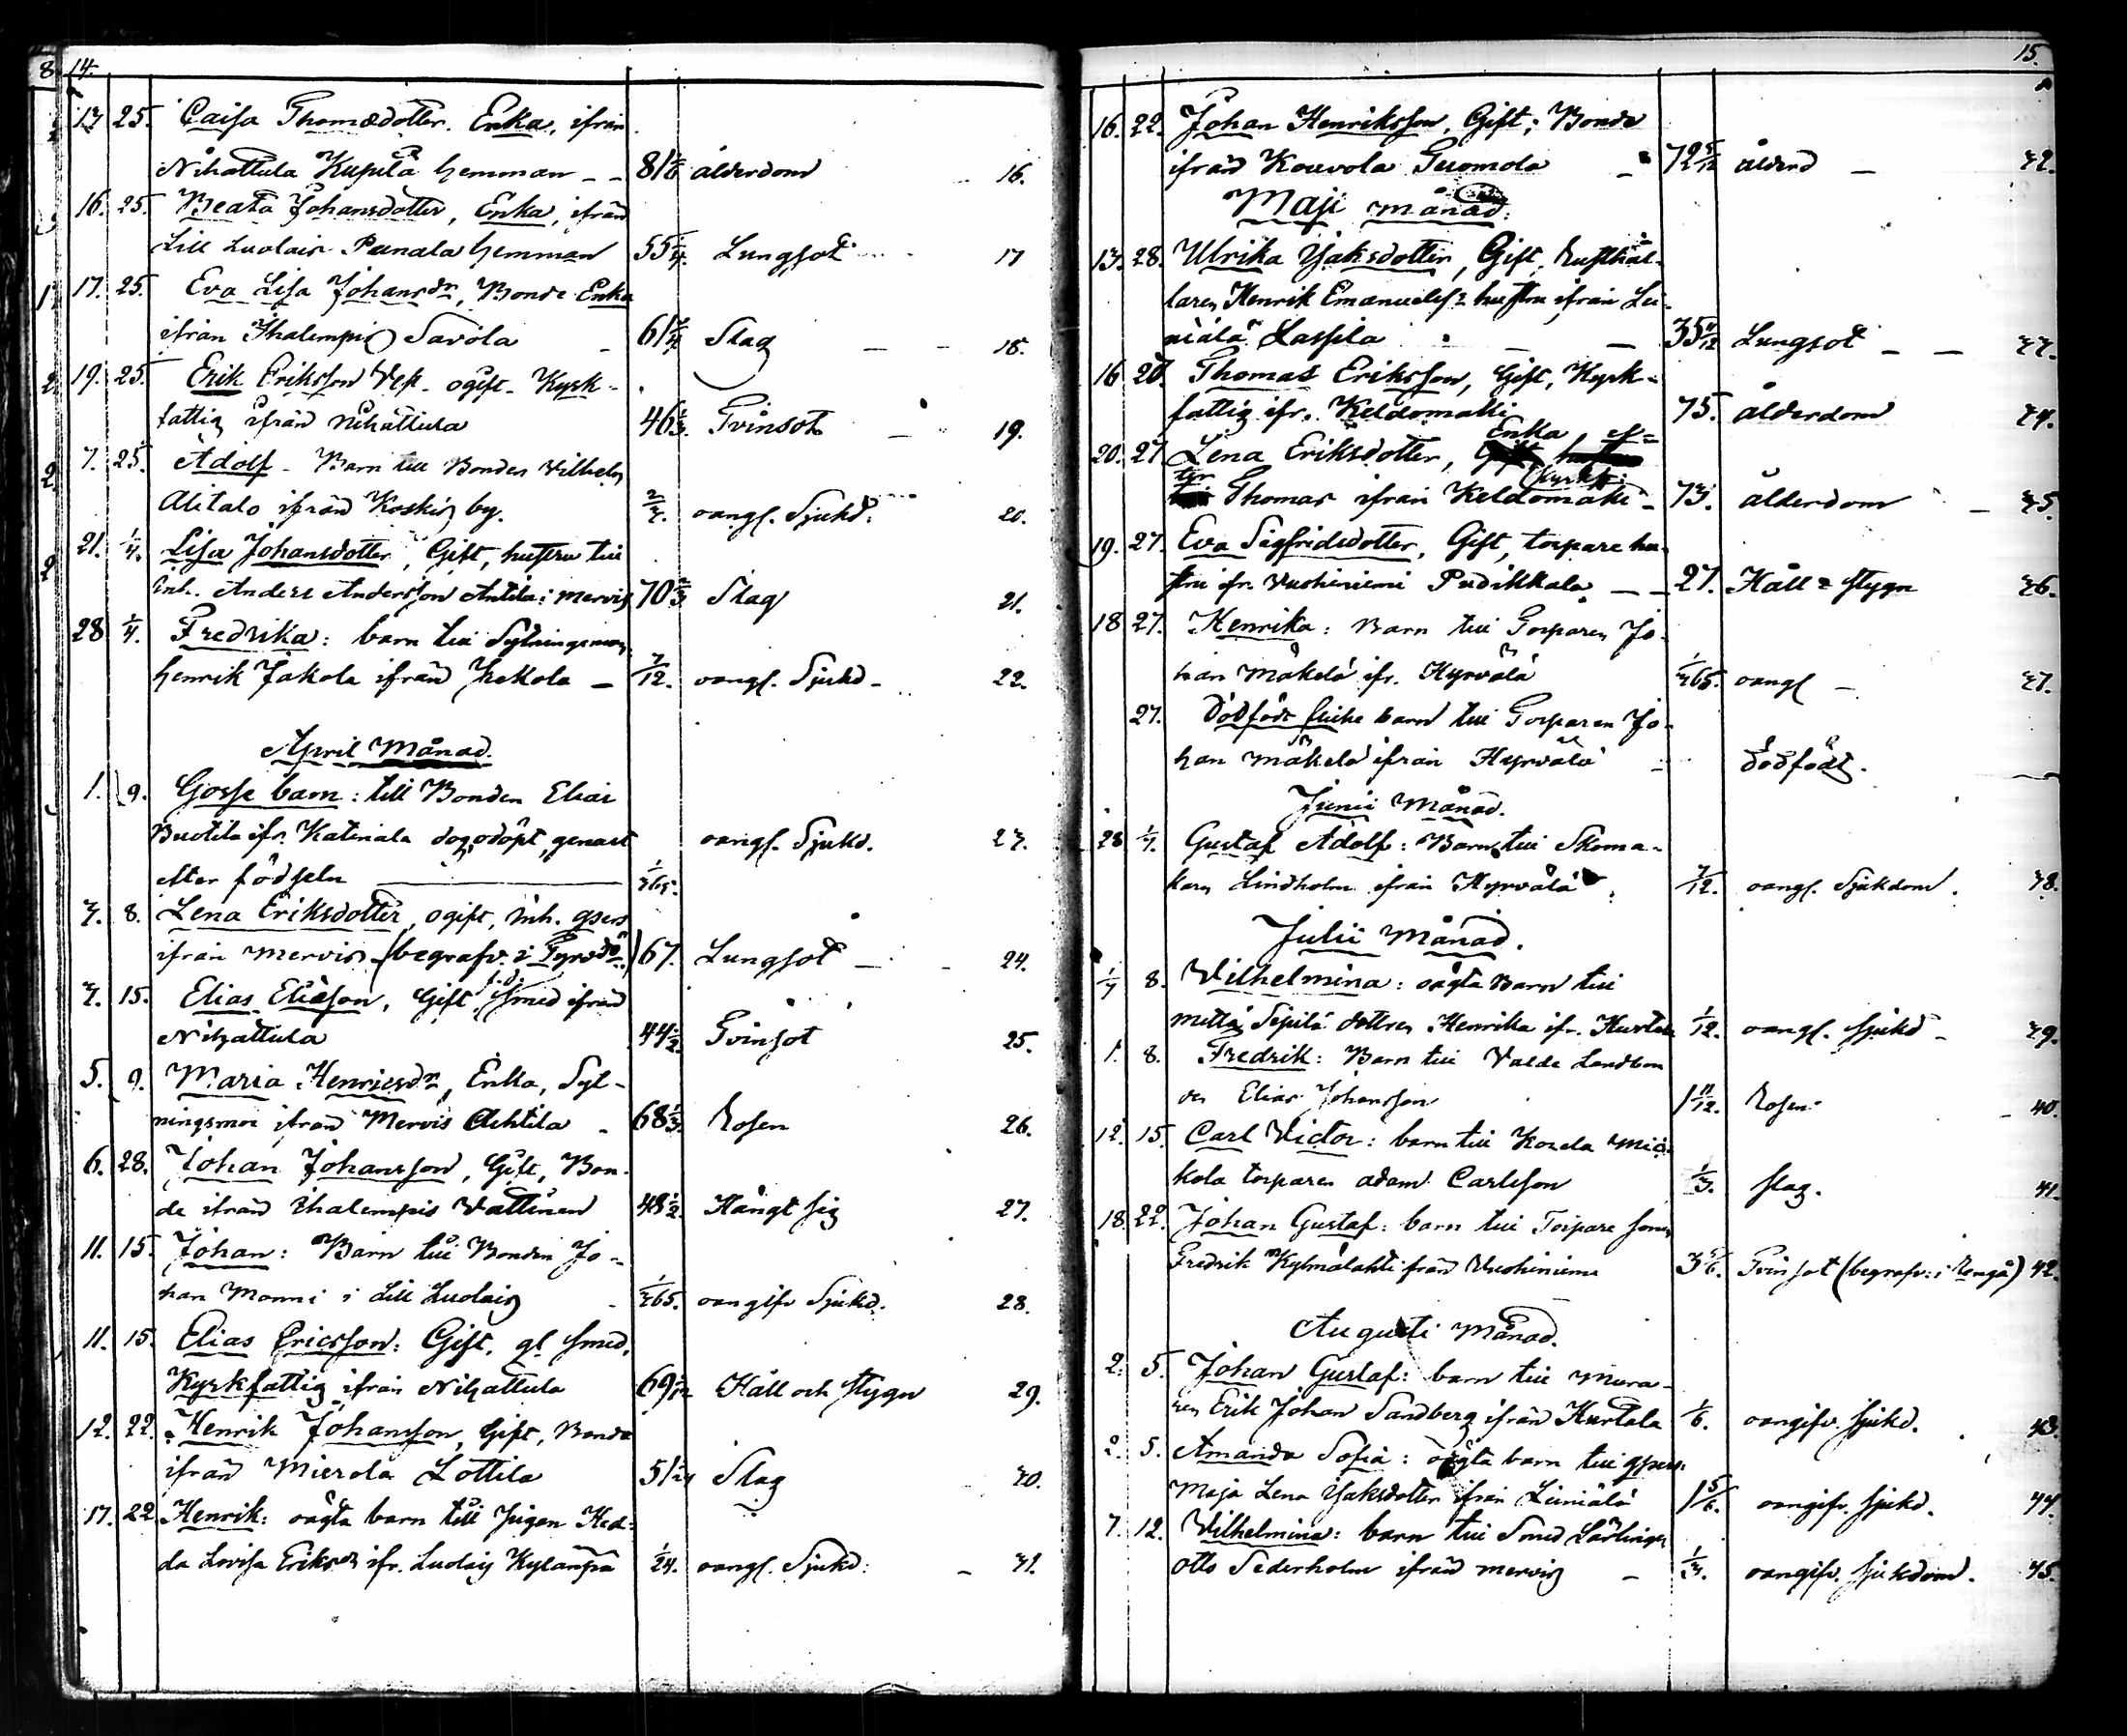 14.
13 25. Caisa Thomædotter. Enka, ifrån
Nihattula Kupila hemman - - 81 1/6 ålderdom 16.
16. 25. Beata Johansdotter, Enka, ifrån
Lill Luolais Panala hemman 55 1/4. Lungsot 17
17. 25. Eva Lisa Johansdr, Bonde Enka
ifrån Ihalempis Savola 61 3/4 Slag 18.
19. 25. Erik Eriksson ogift Kyrk-
fattig ifrån nihattula 46 1/3. Tvinsot 19.
7. 25. Adolf - Barn till Bonden Vilhelm
Alitalo ifrån Koskis by. 2/3. oangf. Sjukd. 20.
21. 1/4. Lisa Johansdotter, Gift, hustru till
Inh. Anders Andersson Antila i mervis 70 2/3 Slag 21.
28 1/4. Fredrika: barn till Sytningsman
henrik Jakola ifrån Hekola - 7/12. oangf. Sjukd - 22.
April Månad.
1. 9. Gosse barn: till Bonden Elias
Buotila ifr. Katinala dog odöpt, genast oangf. Sjukd. 23.
efter födseln 1/365.
3. 8. Lena Eriksdotter, ogift, inh. qpers
ifrån Mervis (begrafv. i Tyrvdö) 67. Lungsot - 24.
3. 15. Elias Eliäson, Gift, f.d. Smed ifrån
Nihattula 44 1/2. Tvinsot 25.
5. 9. Maria Henricsdr, Enka, Syt-
ningsmor ifrån Mervis Achtila - 68 1/3. Rosen 26.
6. 28. Johan Johansson, Gift, Bon-
de ifrån Ihalempis Vattinen 48 1/2. Hängt sig 27.
11. 15. Johan: Barn till Bonden Jo-
han Monni i Lill Luolais 1/365. oangifv Sjukd. 28.
11. 15. Elias Ericsson: Gift, gl smed,
Kyrkfattig ifrån Nihattula 69 1/12 Håll och stygn 29.
12. 22. Henrik Johansson, Gift, Bonde
ifrån Mierola Lottila 51 Slag 30.
17. 22 Henrik: oägta barn till Pigan Hed-
da Lovisa Eriksdr ifr. Luolais Kylänpä 1/24. oangf. Sjukd: - 31.
15.
16. 22. Johan Henriksson, Gift; Bonde
ifrån Kouvola Tuomola - 72 5/12 ålderd - 32.
Maji månad.
13. 28. Ulrika Isaksdotter, Gift, Rusthål-
laren Henrik Emanuelss: hustru ifrån Lei-
niälä Lassila - 35 11/12 Lungsot - - 33.
16 20. Thomas Eriksson, Gift, Kyrk-
fattig ifr. Keldomäki 75. ålderdom 34.
Enka, ef-
20. 27 Lena Eriksdotter,
ter Kyrkf:
Thomas ifrån Keldomäki - 73. ålderdom - 35.
19. 27. Eva Sigfridsdotter, Gift, torpare hu-
stru ifr. Vuohiniemi Pudikkala - - 27. Håll = stygn 36.
18 27. Henrika: Barn till Torparen Jo-
han Mäkelä ifr. Hyrvälä 1/365. oangf - 37.
27. Dödfödt flicke barn till Torparen Jo-
han Mäkelä ifrån Hyrvälä dödfödt. -
Junii Månad.
28 1/7. Gustaf Adolf: Barn till Skoma-
karen Lindholm ifrån Hyrvälä 7/12. oangf. Sjukdom. 38.
Julii Månad.
1/7 8. Vilhelmina: oägta Barn till
Seppilä dottren Henrika ifr. Hurtala 1/12. oangf. sjukd - 39.
1. 8. Fredrik: Barn till Valde Landbon
den Elias Johansson 1 11/12. Rosen - 40.
12. 15. Carl Victor: barn till
kola torparen adam Carlsson 1/3. slag. 41.
18. 22. Johan Gustaf: barn till Torpare sonen
Fredrik Kylmälahti från Vuohiniemi 3 5/6. Tvinsot (begrafv: i Rengå) 42.
Augusti Månad.
2. 5. Johan Gustaf: barn till Mura-
ren Erik Johan Sandberg ifrån Hurtala 1/6. oangifv. sjukd. 43.
2. 5. Amanda Sofia: oägta barn till qpers:
Maja Lena Isaksdotter ifrån Leiniälä 1 5/6. oangifv. sjukd. 44.
7. 12. Vilhelmina: barn till Smed Lärlingen
Otto Sederholm ifrån mervis - 1/3. oangifv. sjukdom. 45.